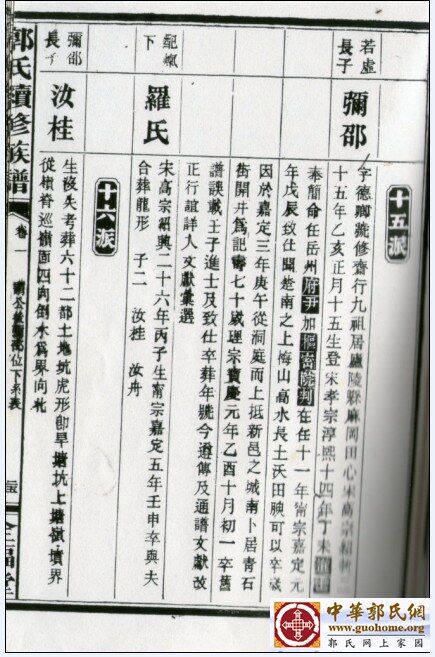 十五派
若虛
長子
彌邵
字德卿號修齋行九祖居廬陵縣麻岡田心宋高宗紹興二
十五年乙亥正月十五生登宋孝宗淳熙十四年丁未
奉簡命任岳州府尹加樞密院判在任十一年甯宗嘉定元
年戊辰致仕聞楚南之上梅山高水長土沃田腴可以卒歲
因於嘉定三年庚午從洞庭而上抵新邑之城南卜居青石
街開井爲記壽七十歲理宗寶慶元年乙酉十月初一卒舊
譜誤載壬子進士及致仕卒葬年號今遵傳及通譜文獻改
正行誼詳人文獻彙選
配
下
羅氏
宋高宗紹興二十六年丙子生甯宗嘉定五年壬申卒與夫
合葬龍形 子二 汝桂 汝舟
十六派
彌邵
長子
汝桂
生歿失考葬六十二都土地坑虎形卽旱塘坑上塘嶺墳界
從嶺脊巡嶺面四向倒水爲界向北
郭氏續修族譜
卷一
位下系表
中華郭氏網
www.guohome.org
郭氏网上家园